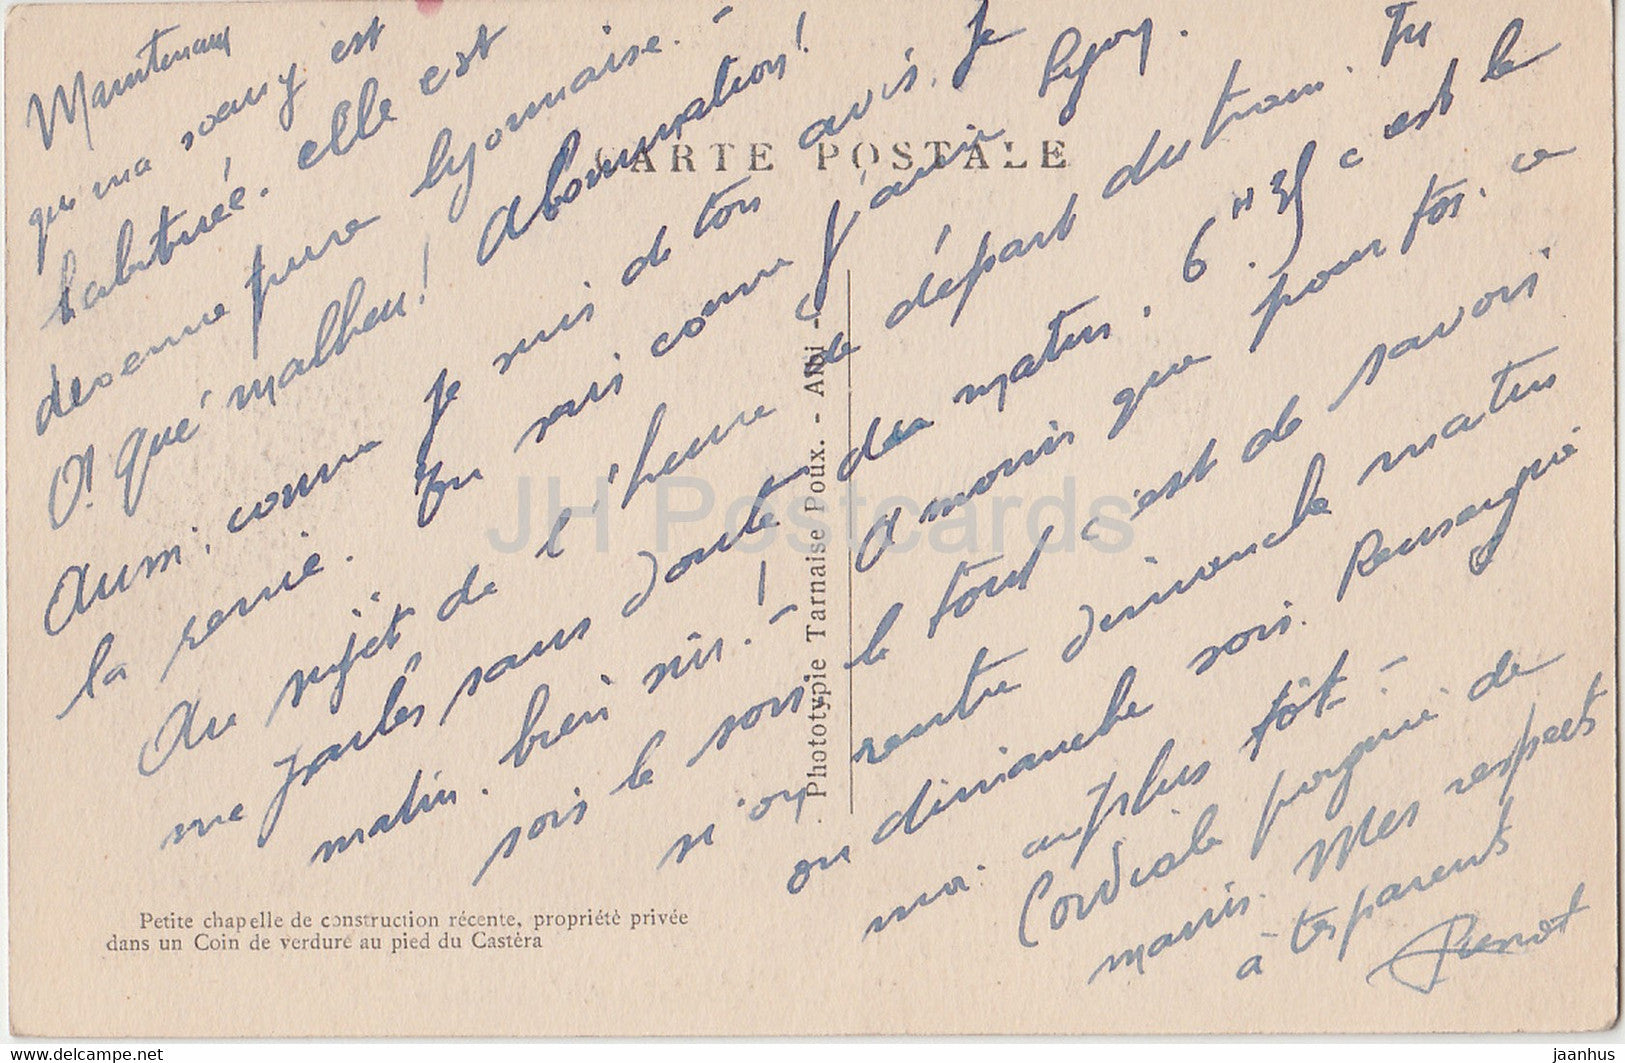 Maintenant
que ma soeur y est
habituée. elle est
devenue pure lyonnaise. -
O! qué malheu! Abomination!
Aussi, comme je suis de ton avis. Je
la renie. Tu sais comme j'aime Lyon.
Au sujet de l'heure de départ du train. Tu
me parles sans doute du matin. 6H 35 c'est le
matin. bien sûr! - A moins que pour toi. ce
sois le soir, le tout c'est de savoir
si on rentre dimanche matin
ou dimanche soir. Renseigne
moi au plus tôt. -
Cordiale poignée de
mains. Mes respects
à tes parents
CARTE POSTALE
Phototypie Tarnaise Poux. - Albi -
Petite chapelle de construction récente, propriété privée
dans un Coin de verdure au pied du Castéra
JH Postcards
www.delcampe.net
jaanhus